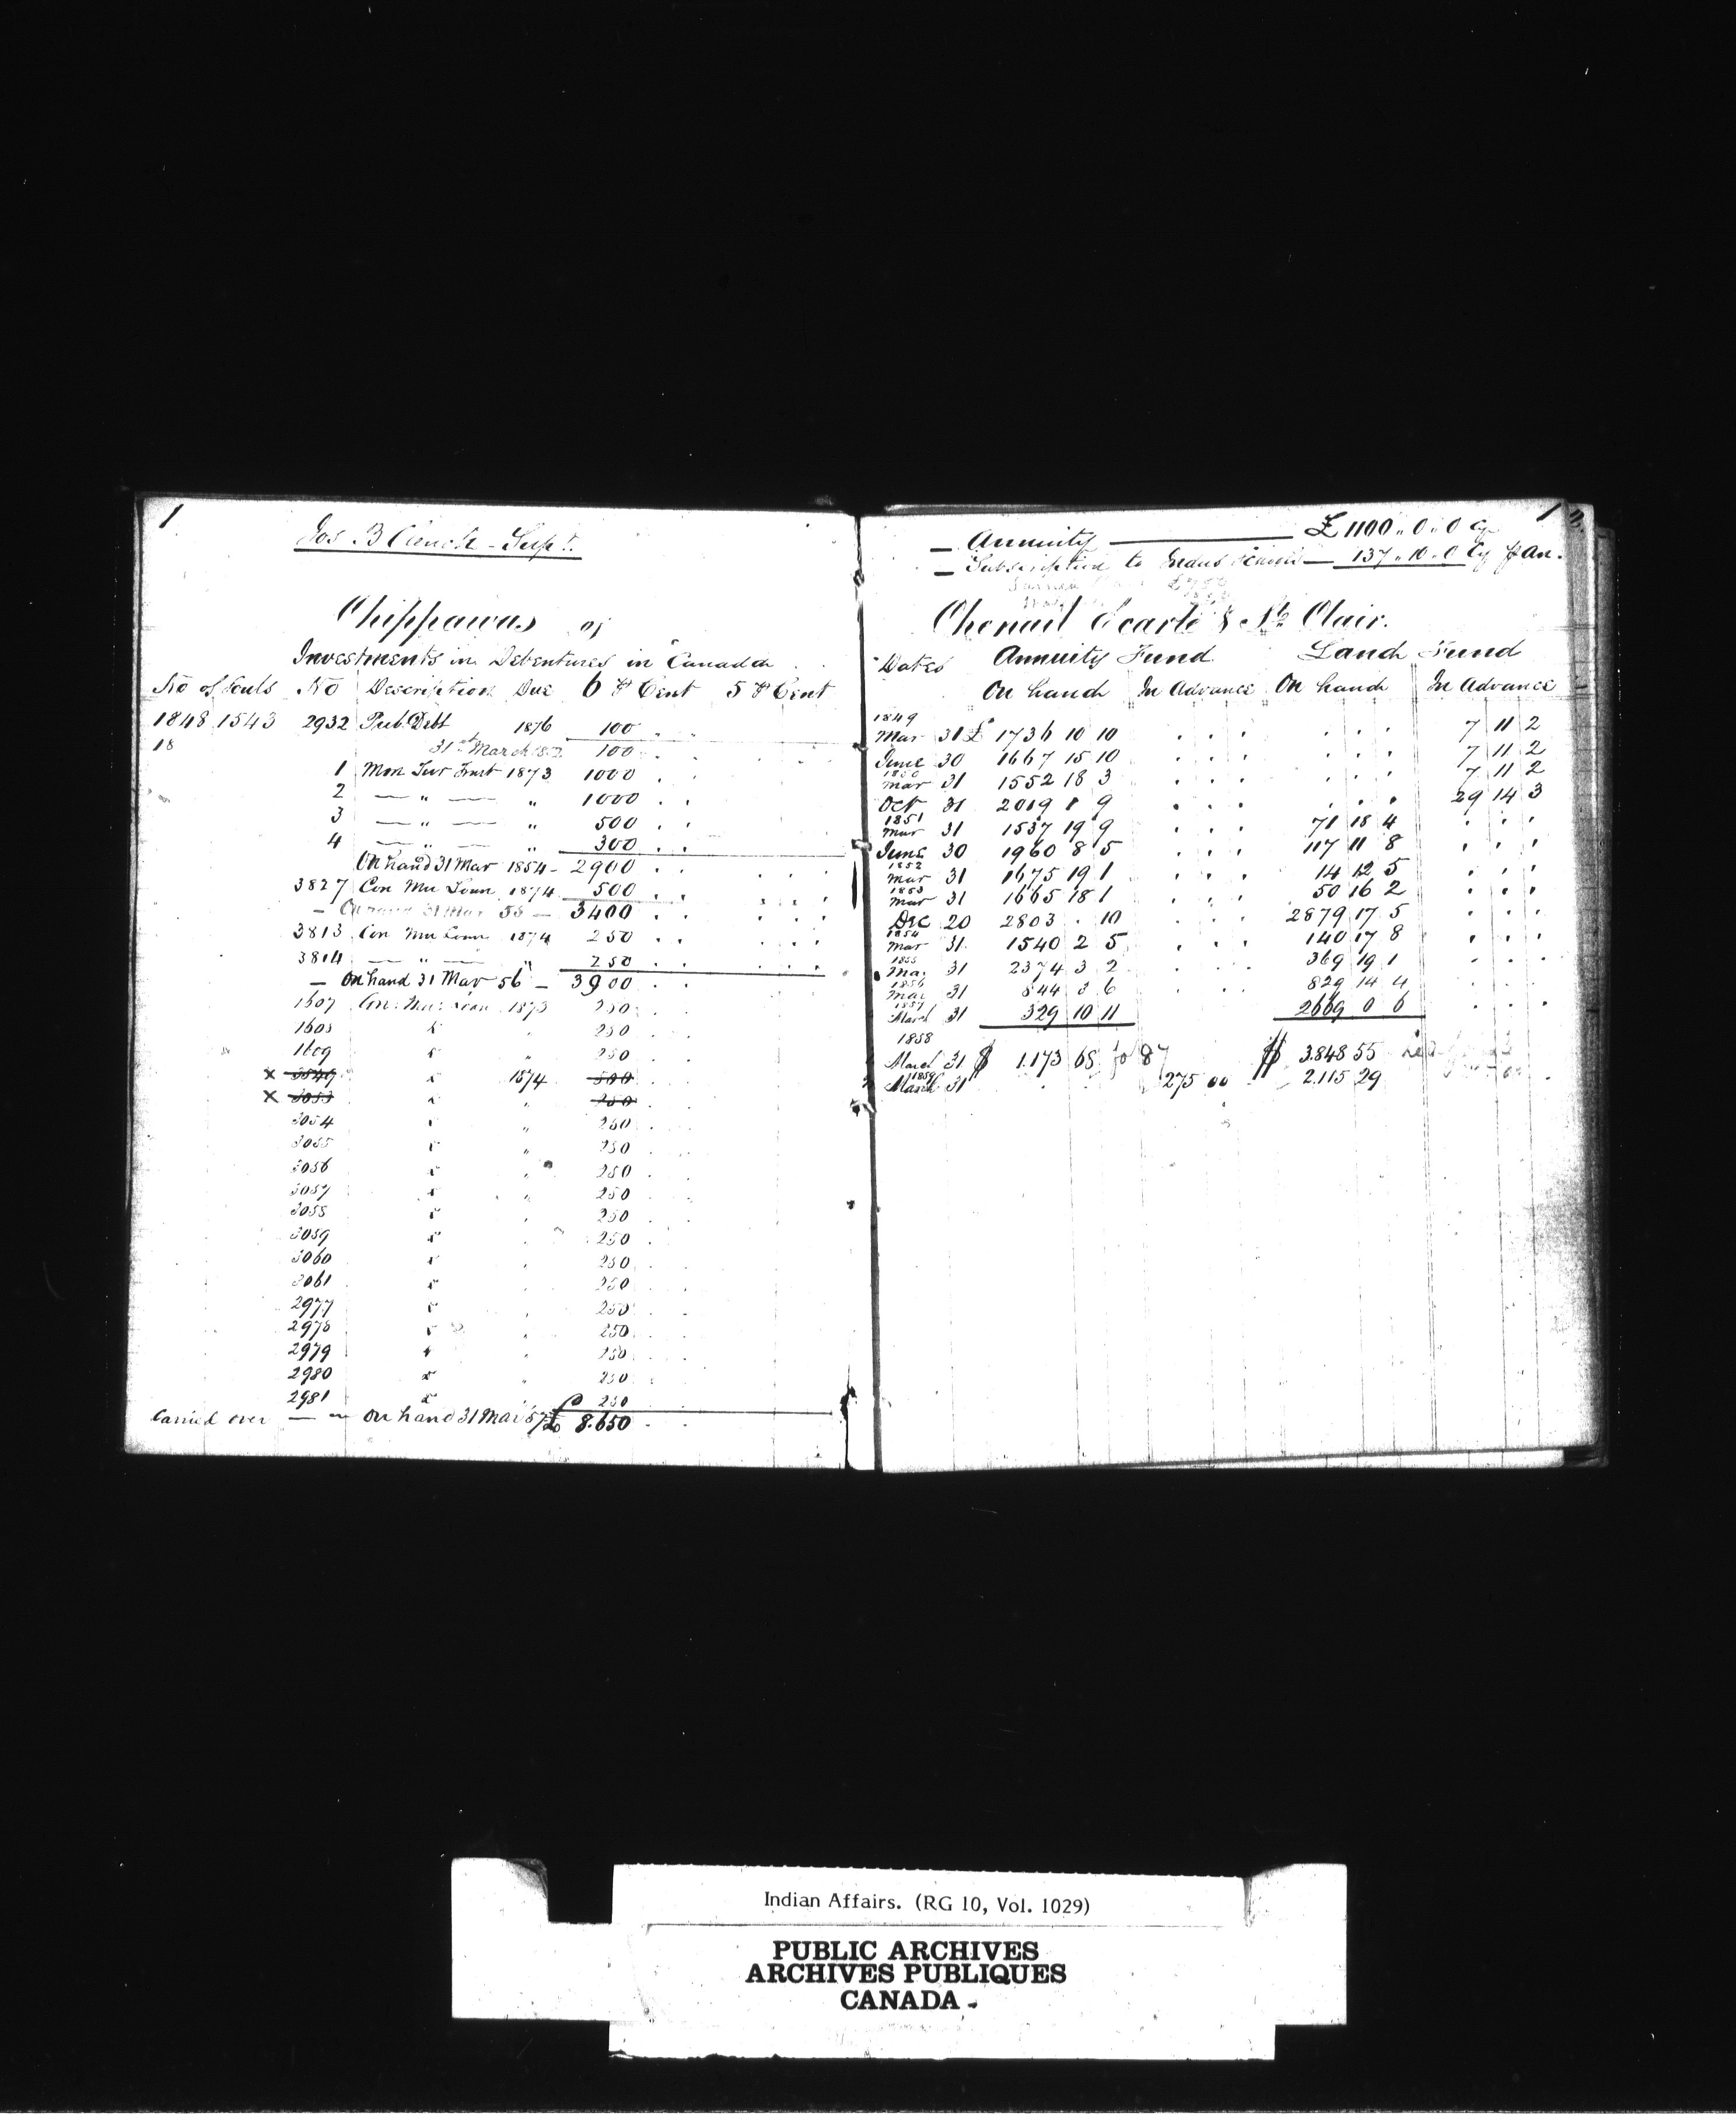 1
Jos B Clench - Supt.
Chippawas of
Investments in Debentures in Canada
No of Souls No Description Due 6 P Cent 5 P Cent
1848 1543 2932 Pub Debt 1876 100 . .
18 31st March 1852 100 . .
1 Mon Tur Trust 1873 1000 . .
2 — " — " 1000 . .
3 — " — " 500 . .
4 — " — " 300 . .
On hand 31 Mar 1854 - 2900 . .
3827 Con Mu Loan 1874 500 . .
— On hand 31 Mar 55 — 3400 . .
3813 Con Mu Loan 1874 250 . .
3814 — " — " 250 . .
— On hand 31 Mar 56 — 3900 . .
1607 Con: Mu: Loan 1873 250 . .
1608 " " 250 . .
1609 " " 250 . .
x 3549 " 1874 500
x 3053 " " 250 . .
3054 " " 250 . .
3055 " " 250 . .
3056 " " 250 . .
3057 " " 250 . .
3058 " " 250 . .
3059 " " 250 . .
3060 " " 250 . .
3061 " " 250 . .
2977 " " 250 . .
2978 " " 250 . .
2979 " " 250 . .
2980 " " 250 . .
2981 " 250 . .
Carried over — on hand 31 Mar 57 £ 8.650 . .
1
— Annuity — £1100 .. 0 .. 0 Cy
— Subscription to Indus School — 137 .. 10 .. 0 Cy P An.
Chenail Ecarté & St Clair.
Dates Annuity Fund Land Fund
On hand In Advance On hand In Advance
1849
Mar 31 £ 1736 10 10 . . . . . . 7 11 2
June 30 1667 15 10 . . . . . . 7 11 2
1850
Mar 31 1552 18 3 . . . . . . 7 11 2
Oct 31 2019 1 9 . . . . . . 29 14 3
1851
Mar 31 1537 19 9 . . . 71 18 4 . . .
June 30 1960 8 5 . . . 117 11 8 . . .
1852
Mar 31 1675 19 1 . . . 14 12 5 . . .
1853
Mar 31 1665 18 1 . . . 50 16 2 . . .
Dec 20 2803 . 10 . . . 2879 17 5 . . .
1854
Mar 31 1540 2 5 . . . 140 17 8 . . .
1855
Mar 31 2374 3 2 . . . 369 19 1 . . .
1856
Mar 31 844 3 6 . . . 829 14 4 . . .
1857
March 31 329 10 11 2669 0 6 . . .
1858
March 31 $ 1.173 68 fo 87 $ 3.848 55
1859
March 31 . . 275 00 2.115 29
Indian Affairs. (RG 10, Vol. 1029)
PUBLIC ARCHIVES
ARCHIVES PUBLIQUES
CANADA